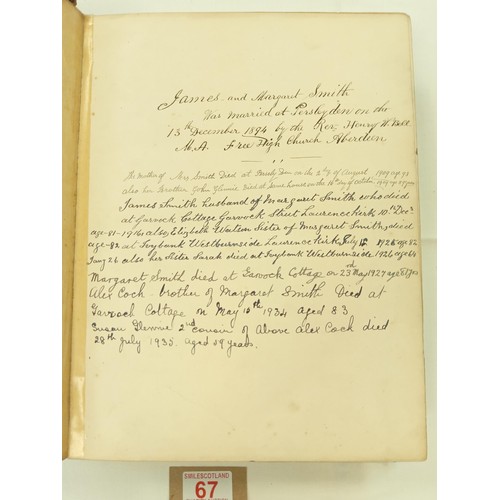 James and Margaret Smith
Was Married at Persleyden on the
13th December 1894 by the Rev. Henry W. Bell
M.A. Free High Church Aberdeen
The Mother of Mrs Smith Died at Persley Den on the 2nd of August 1909
also her Brother John Glennie Died at Same house on the
James Smith husband of Margaret Smith who died
at Garvock Cottage Garvock Street Laurencekirk 10th Decr
age-81-1916 also Elizabeth Watson Sister of Margaret Smith, died
age-82 at Ivybank Westburnside Laurencekirk July 15
also her Sister Sarah died at Ivybank Westburnside 1926 age 84
Margaret Smith died at Garvock Cottage on 23rd May 1927 age
Alex Coch. brother of Margaret Smith Died at
Garrock Cottage on May 12th 1934 aged 83
Susan Glennie 2nd cousin of Above Alex Coch died
28th July 1935. aged 59 years.
SMILESCOTLAND
67